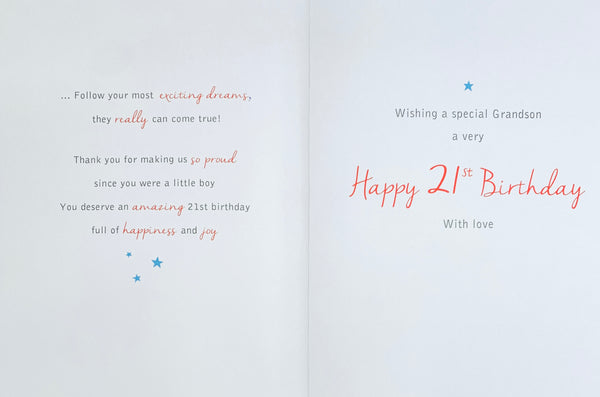 ... Follow your most exciting dreams,
they really can come true!
Thank you for making us so proud
since you were a little boy
You deserve an amazing 21st birthday
full of happiness and joy
Wishing a special Grandson
a very
Happy 21st Birthday
With love